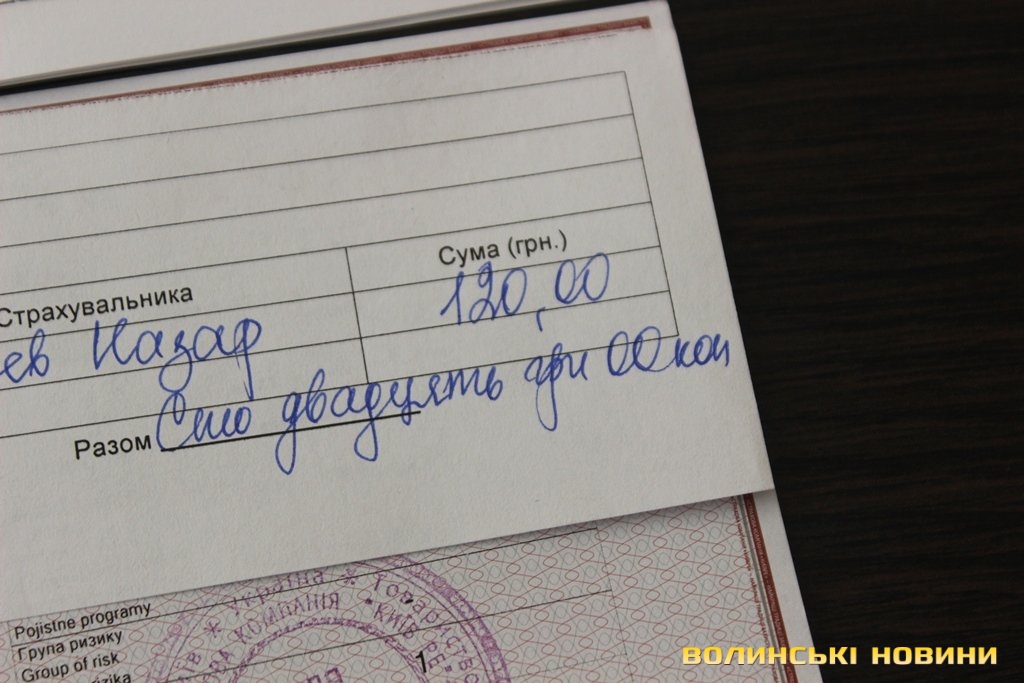 Страхувальника
Сума (грн.)
ев Назар
120,00
Разом Сто двадцять грн 00 коп
Україна * Товариство
КОМПАНІЯ • КИЇВ
Pojistne programy
Група ризику
Group of risk
1
ВОЛИНСЬКІ НОВИНИ